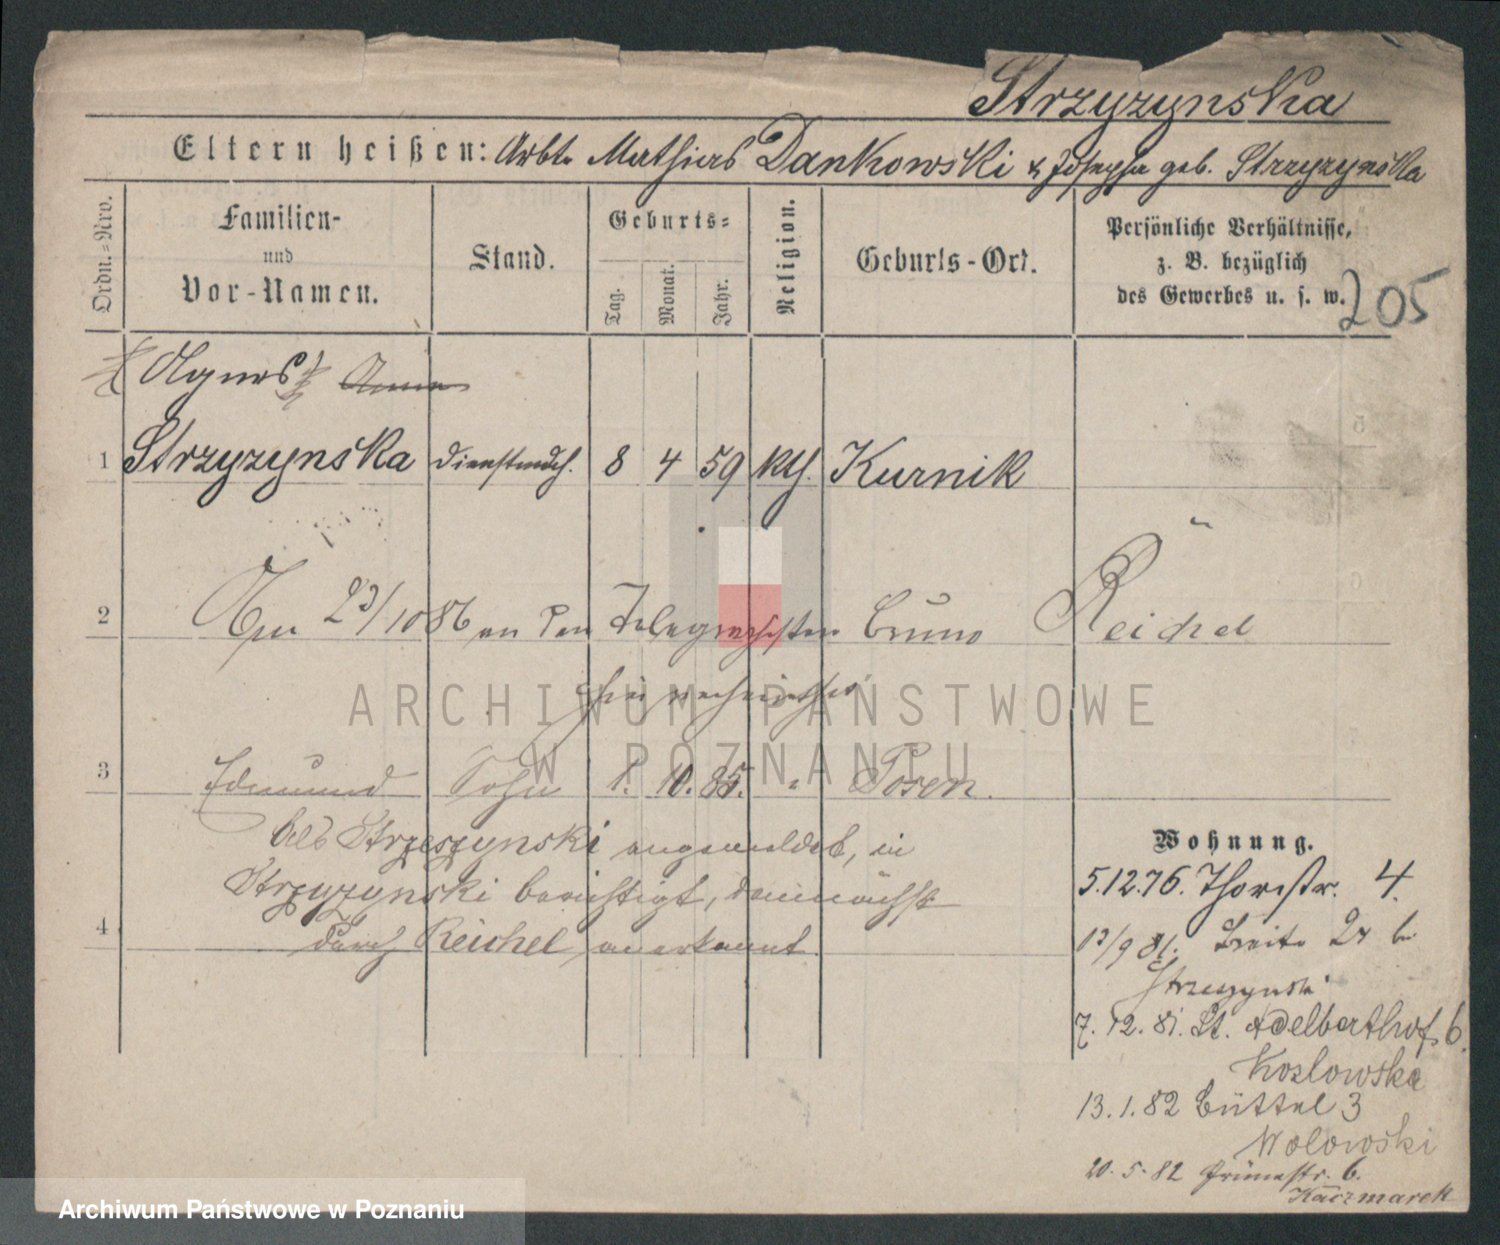 Strzyzynska
Eltern heißen: Arbtr Mathias Dankowski & Josepha geb. Strzyzynska
Ordn.=Nro.
Familien-
und
Vor-Namen.
Stand.
Geburts=
Tag.
Monat.
Jahr.
Religion.
Geburts-Ort.
Persönliche Verhältnisse,
z. B. bezüglich
des Gewerbes u. s. w.
205
Agnes Anna
1 Strzyzynska Dienstmdch. 8 4 59 kth. Kurnik
2 23/10 86 an den Telegraphisten Bruno Reichel
hier verheirathet
3 Edmund Sohn 1. 10. 85. " Posen.
Als Strzeszynski angemeldet, in
Strzyzynski berichtigt, demnächst
4 durch Reichel anerkannt.
Wohnung.
5.12.76. Thorstr. 4.
13/9 81. Breite 24 b.
Strzezynski
7. 12. 81. St. Adelberthof. 6.
Kozlowska
13. 1. 82 Büttel 3
Wolowski
20. 5. 82 Grünestr. 6.
Kaczmarek
ARCHIWUM PAŃSTWOWE
W POZNANIU
Archiwum Państwowe w Poznaniu